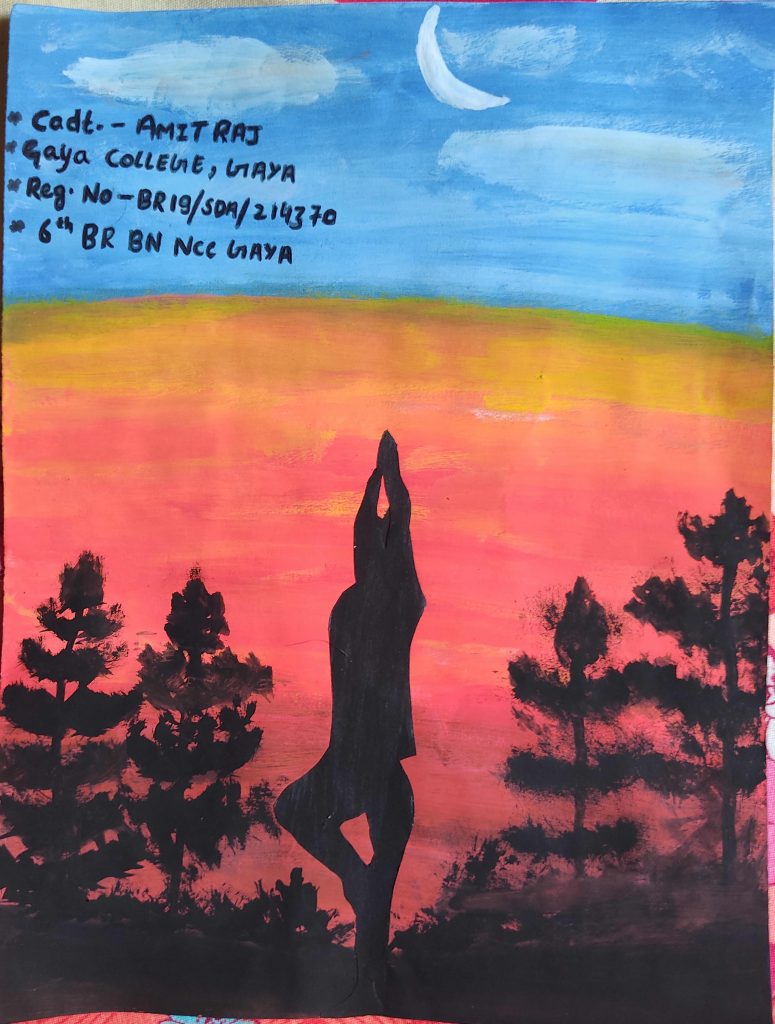 * Cadt. - AMIT RAJ
* Gaya COLLEGE, GAYA
* Reg. No - BR19/SDA/214370
* 6th BR BN NCC GAYA